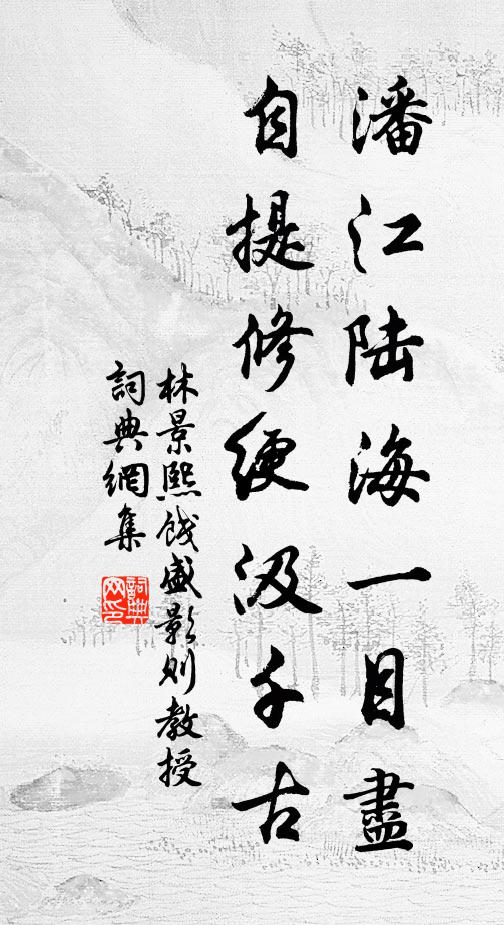 潘江陆海一目盡
自提修绠汲千古
林景熙餞盛影则教授
詞典網集
詞典